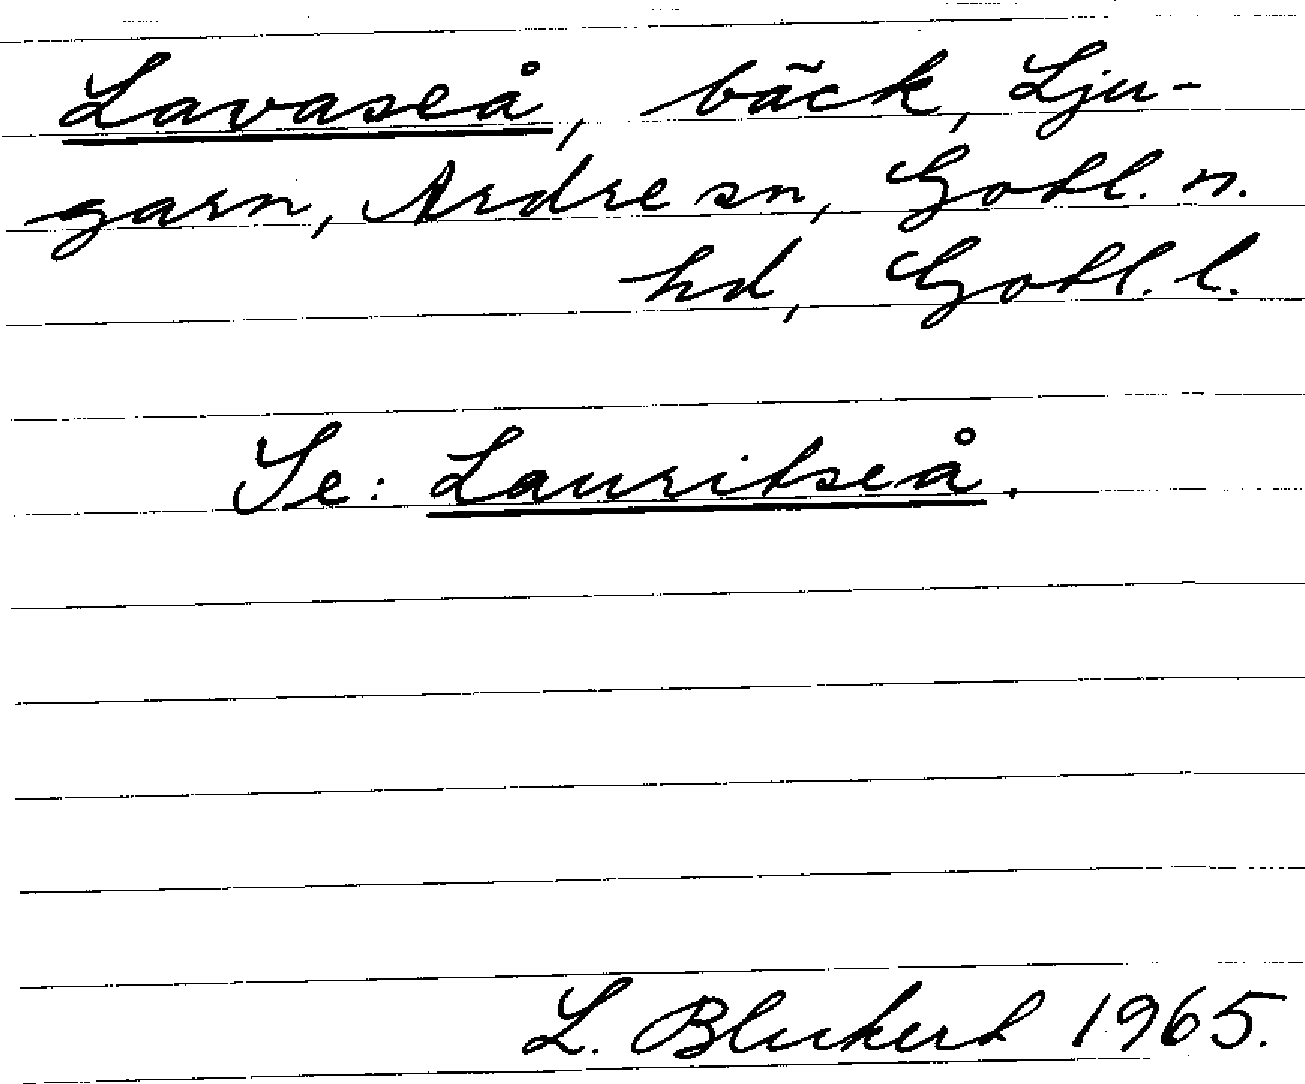 Lavaseå, bäck, Lju-
garn, Ardre sn, Gotl. n.
hd, Gotl. l.
Se: Lauritseå.
L. Blickert 1965.